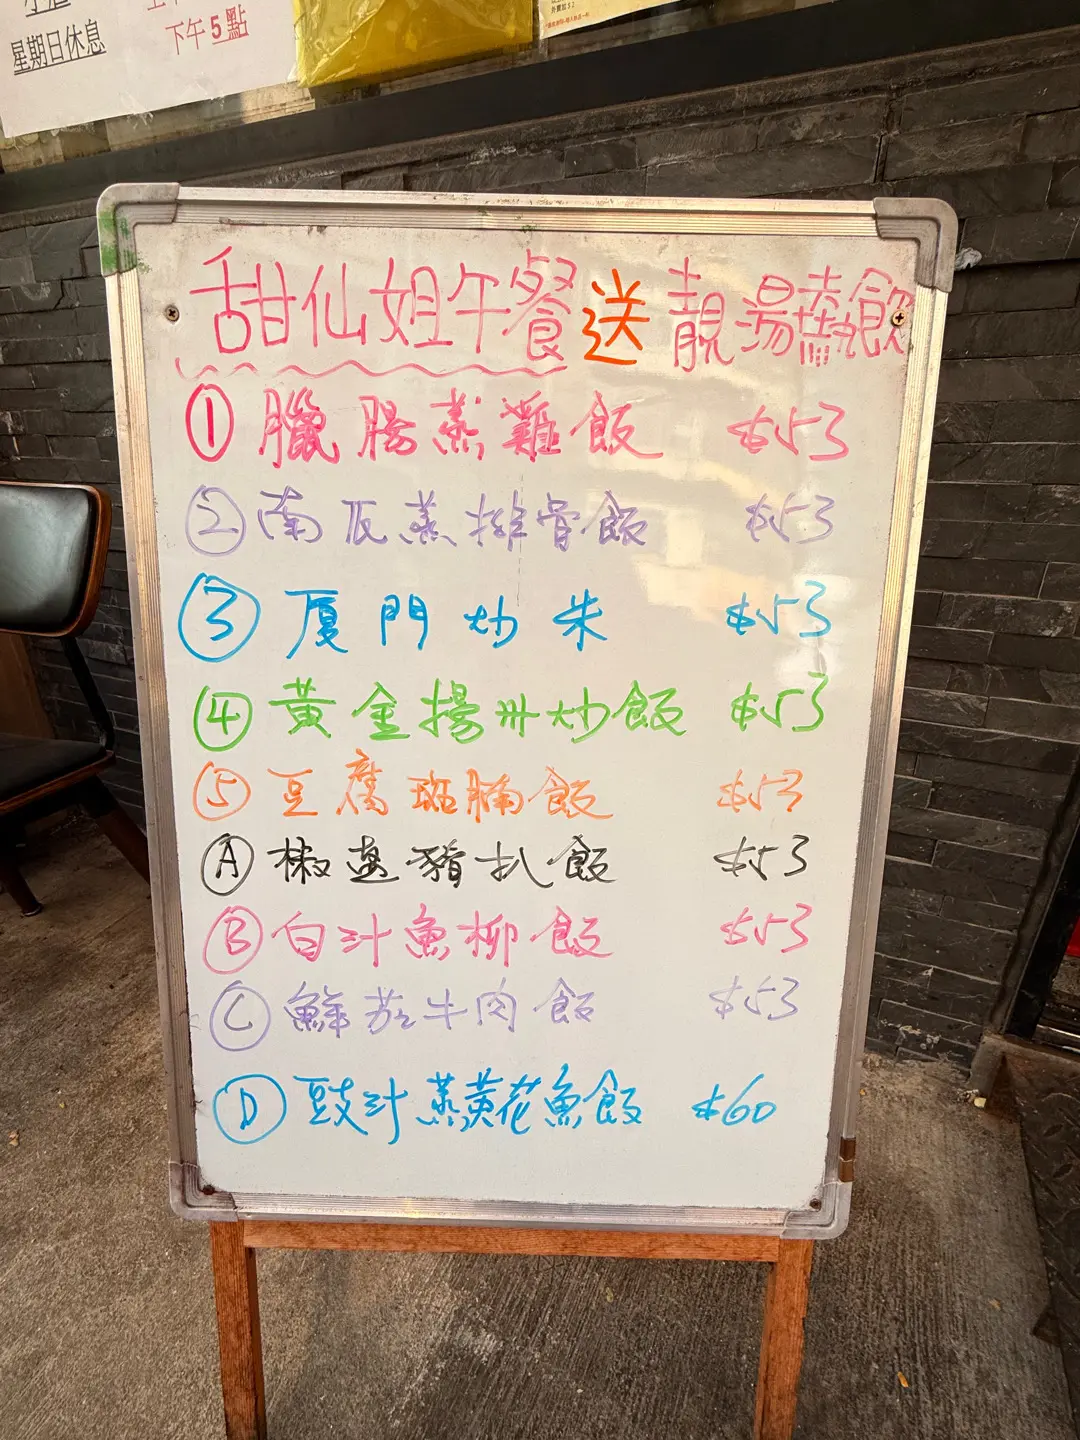 星期日休息
下午5點
甜仙姐午餐送靚湯熱飲
① 臘腸蒸雞飯 $53
② 南瓜蒸排骨飯 $53
③ 厦門炒米 $53
④ 黃金揚州炒飯 $53
⑤ 豆腐斑腩飯 $53
Ⓐ 椒盐豬扒飯 $53
Ⓑ 白汁魚柳飯 $53
Ⓒ 鮮茄牛肉飯 $53
Ⓓ 豉汁蒸黃花魚飯 $60